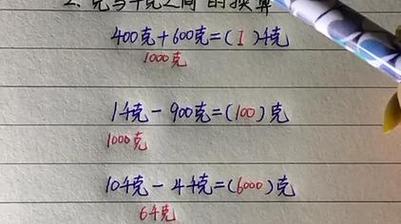 2. 克与千克之间的换算
400克+600克=(1)千克
1000克
1千克-900克=(100)克
1000克
10千克-4千克=(6000)克
6千克